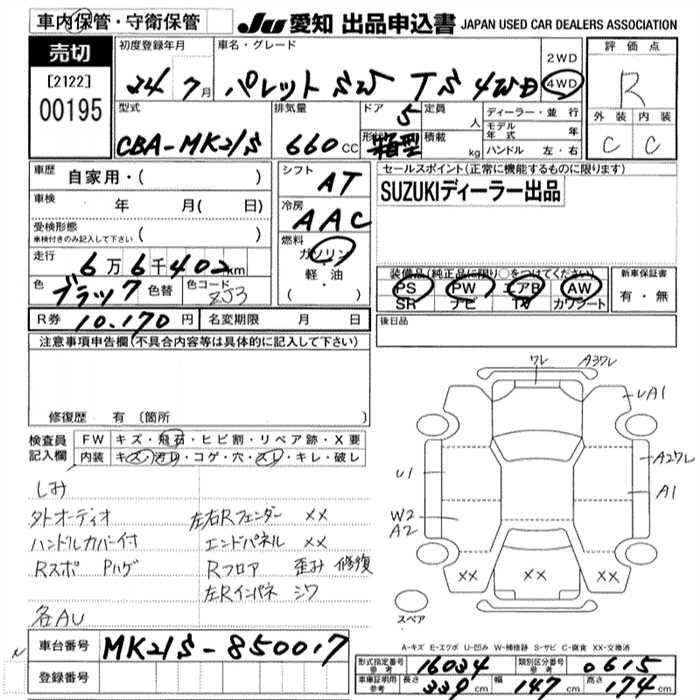 車内保管・守衛保管
JU 愛知 出品申込書 JAPAN USED CAR DEALERS ASSOCIATION
売切
[2122]
00195
初度登録年月
24年7月
車名・グレード
パレットSW TS 4WD
2WD
4WD
評価点
R
外装 内装
C C
型式
CBA-MK21S
排気量
660cc
ドア 5
形状 箱型
定員 人
積載 kg
ディーラー・並行
モデル年式 年
ハンドル 左・右
車歴 自家用・( )
車検 年 月( 日)
受検形態
車検付きのみ記入して下さい ( )
走行 6万6千402km
色 ブラック 色替 色コード ZJ3
シフト AT
冷房 AAC
燃料 ガソリン・軽油・( )
セールスポイント(正常に機能するものに限ります)
SUZUKIディーラー出品
装備品(純正品に限り○をつけてください)
PS PW エアB AW
SR ナビ TV カワシート
新車保証書
有・無
R券 10.170円 名変期限 月 日
後日品
注意事項申告欄(不具合内容等は具体的に記入して下さい)
修復歴 有〔箇所
検査員記入欄
FW キズ・飛石・ヒビ割・リペア跡・X要
内装 キズ・汚レ・コゲ・穴・スレ・キレ・破レ
しみ
外オーディオ
ハンドルカバー付
Rスポ Pハゲ
各AU
左右Rフェンダー ××
エンドパネル ××
Rフロア 歪み 修復
左Rインパネ シワ
ワレ A3ワレ
UA1
A2ワレ
U1
A1
W2
A2
×× ×× ××
スペア
A-キズ E-エクボ U-凹み W-補修跡 S-サビ C-腐食 XX-交換済
車台番号 MK21S-850017
登録番号
型式指定番号 参考 16034 類別区分番号 参考 0615
車庫証明用 参考 長さ 339cm 幅 147cm 高さ 174cm